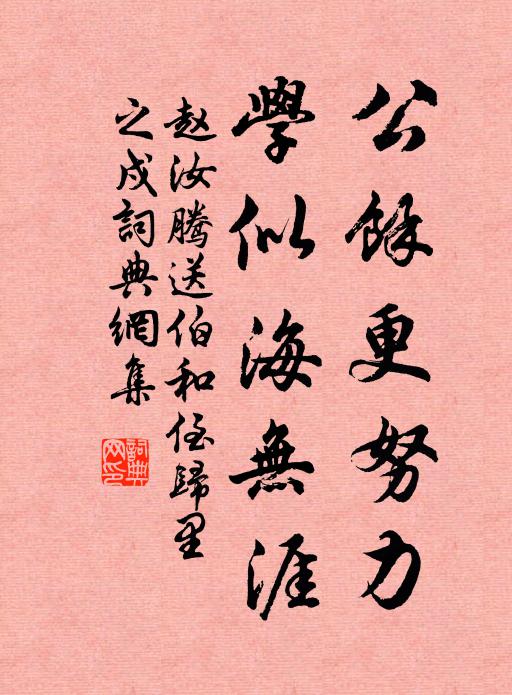 公餘更努力
學似海無涯
赵汝腾送伯和侄歸里
之戍詞典網集
詞典网印